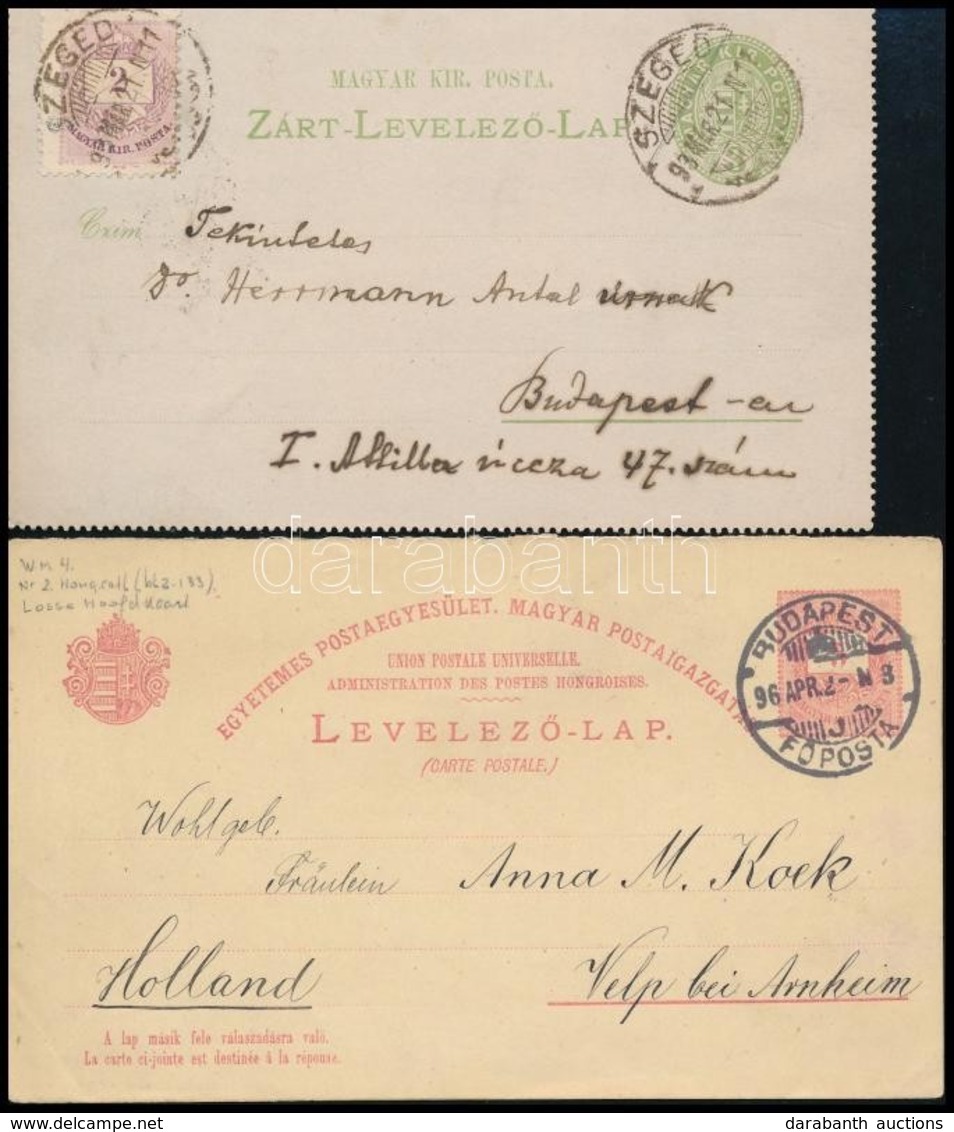 SZEGED
2
MAGYAR KIR. POSTA.
MAGYAR KIR. POSTA.
ZÁRT-LEVELEZŐ-LAP
SZEGED
93 MÁR. 21 N
Czim Tekintetes
Dr. Herrmann Antal úrnak
Budapest-en
I. Attilla úcza 47. szám
darabanth
WM 4.
Nr 2. Hongroll (blz-133).
Losse Hoofdkaart
EGYETEMES POSTAEGYESÜLET. MAGYAR POSTAIGAZGATÁ
UNION POSTALE UNIVERSELLE.
ADMINISTRATION DES POSTES HONGROISES.
LEVELEZŐ-LAP.
(CARTE POSTALE.)
BUDAPEST
96 APR. 2 - N 8
FŐPOSTA
Wohlgeb.
Fräulein Anna M. Koek
Holland Velp bei Arnheim
A lap másik fele válaszadásra való.
La carte ci-jointe est destinée á la réponse.
darabanth auctions